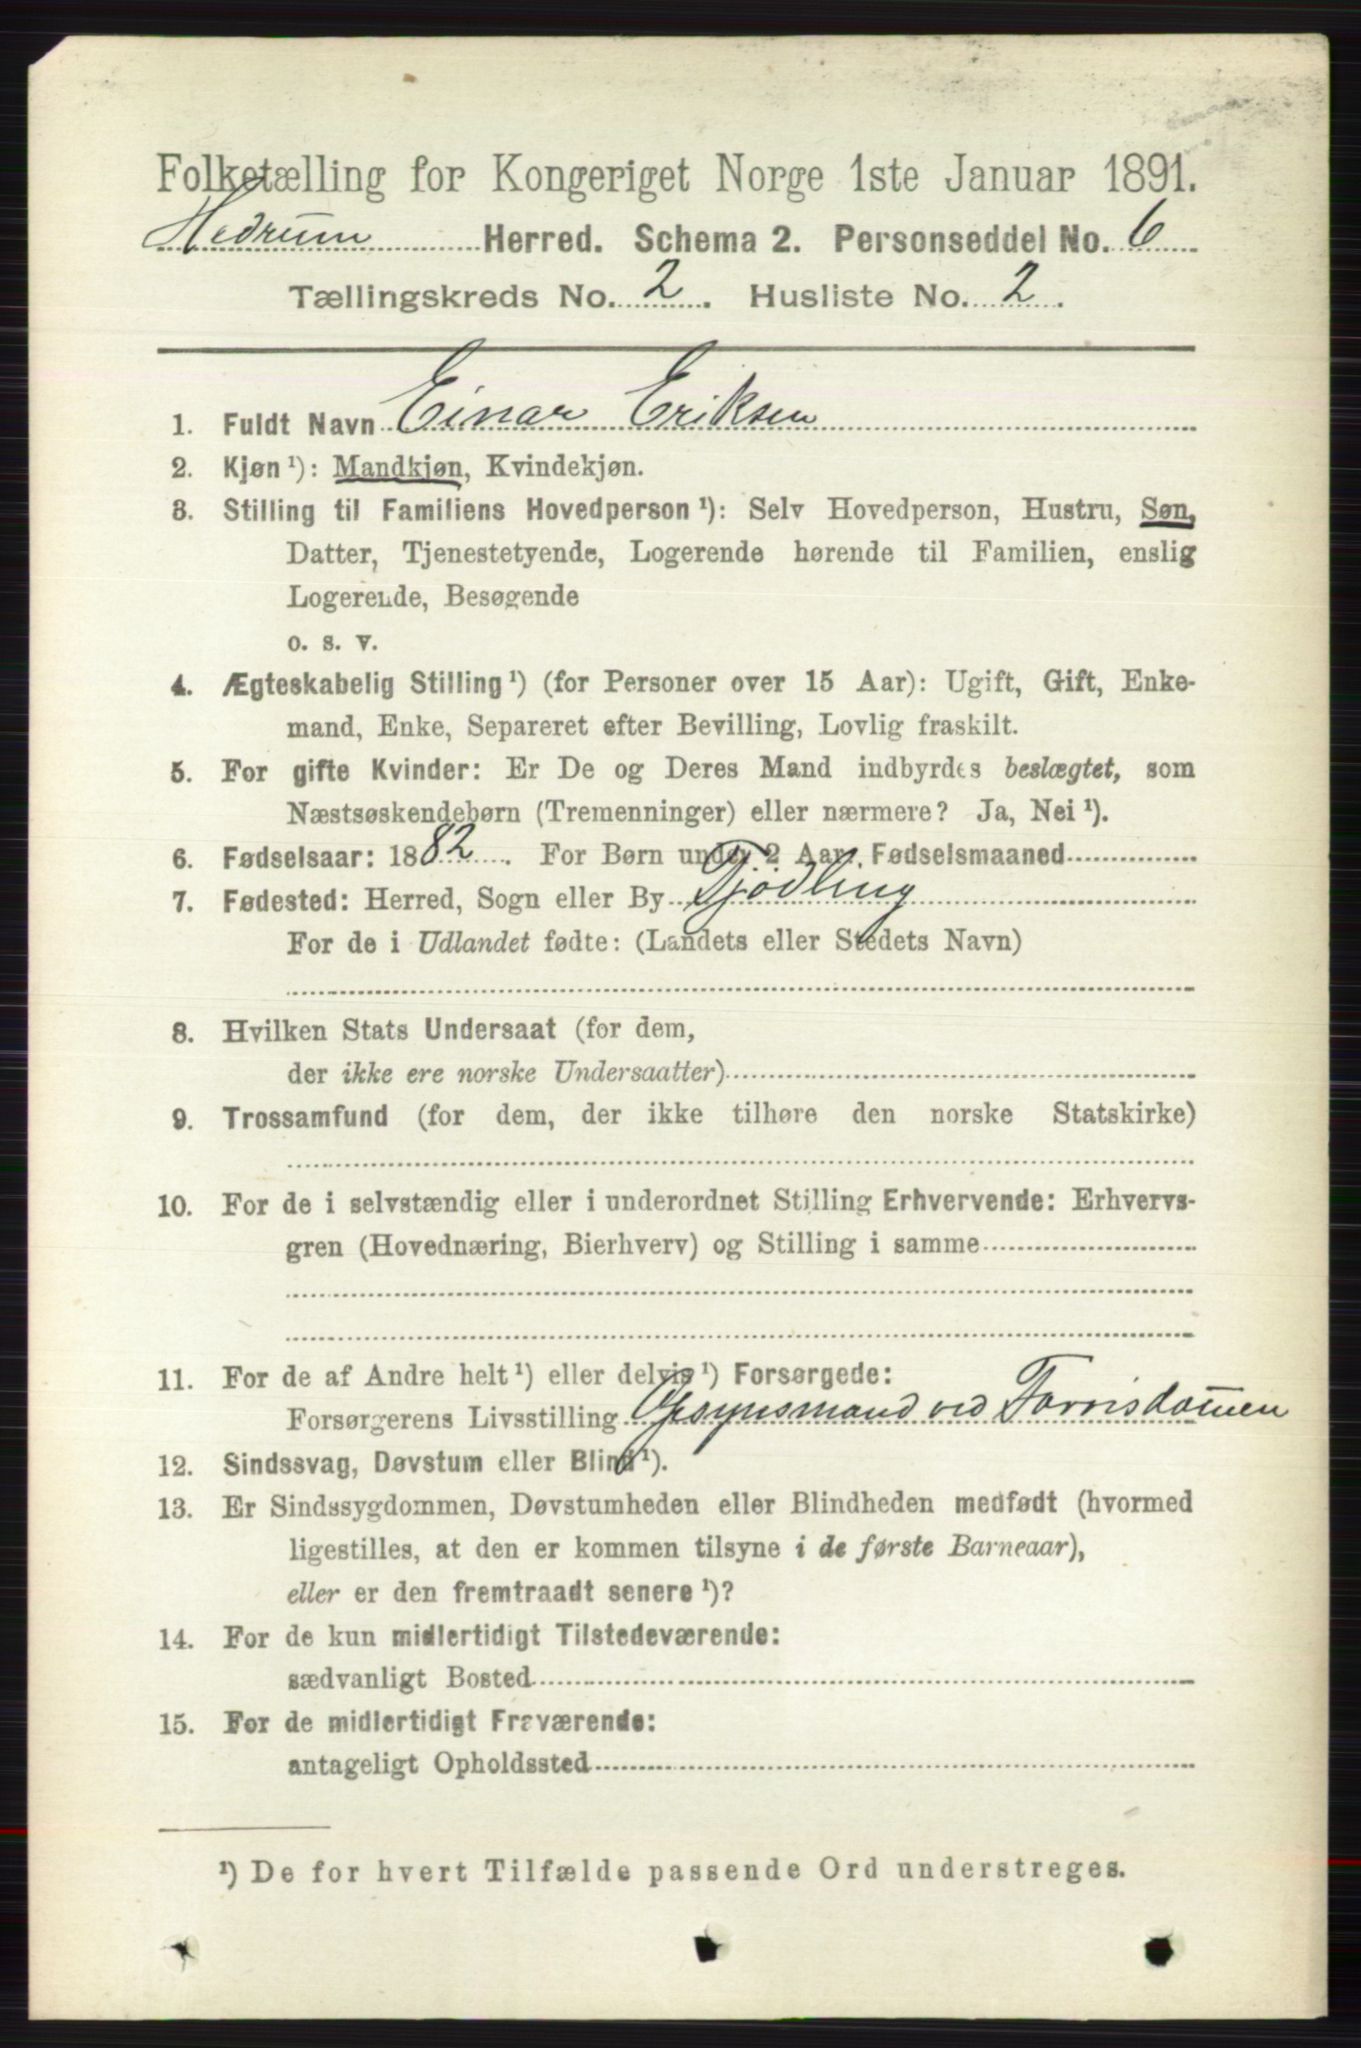 Folketælling for Kongeriget Norge 1ste Januar 1891.
Hedrum Herred. Schema 2. Personseddel No. 6
Tællingskreds No. 2. Husliste No. 2.
1. Fuldt Navn Einar Eriksen
2. Kjøn ¹): Mandkjøn, Kvindekjøn.
3. Stilling til Familiens Hovedperson ¹): Selv Hovedperson, Hustru, Søn,
Datter, Tjenestetyende, Logerende hørende til Familien, enslig
Logerende, Besøgende
o. s. v.
4. Ægteskabelig Stilling ¹) (for Personer over 15 Aar): Ugift, Gift, Enke-
mand, Enke, Separeret efter Bevilling, Lovlig fraskilt.
5. For gifte Kvinder: Er De og Deres Mand indbyrdes beslægtet, som
Næstsøskendebørn (Tremenninger) eller nærmere? Ja, Nei ¹).
6. Fødselsaar: 1882. For Børn under 2 Aar, Fødselsmaaned
7. Fødested: Herred, Sogn eller By Tjödling
For de i Udlandet fødte: (Landets eller Stedets Navn)
8. Hvilken Stats Undersaat (for dem,
der ikke ere norske Undersaatter)
9. Trossamfund (for dem, der ikke tilhøre den norske Statskirke)
10. For de i selvstændig eller i underordnet Stilling Erhvervende: Erhvervs-
gren (Hovednæring, Bierhverv) og Stilling i samme
11. For de af Andre helt ¹) eller delvis ¹) Forsørgede:
Forsørgerens Livsstilling Opsynsmand ved Farrisdammen
12. Sindssvag, Døvstum eller Blind ¹).
13. Er Sindssygdommen, Døvstumheden eller Blindheden medfødt (hvormed
ligestilles, at den er kommen tilsyne i de første Barneaar),
eller er den fremtraadt senere ¹)?
14. For de kun midlertidigt Tilstedeværende:
sædvanligt Bosted
15. For de midlertidigt Fraværende:
antageligt Opholdssted
¹) De for hvert Tilfælde passende Ord understreges.